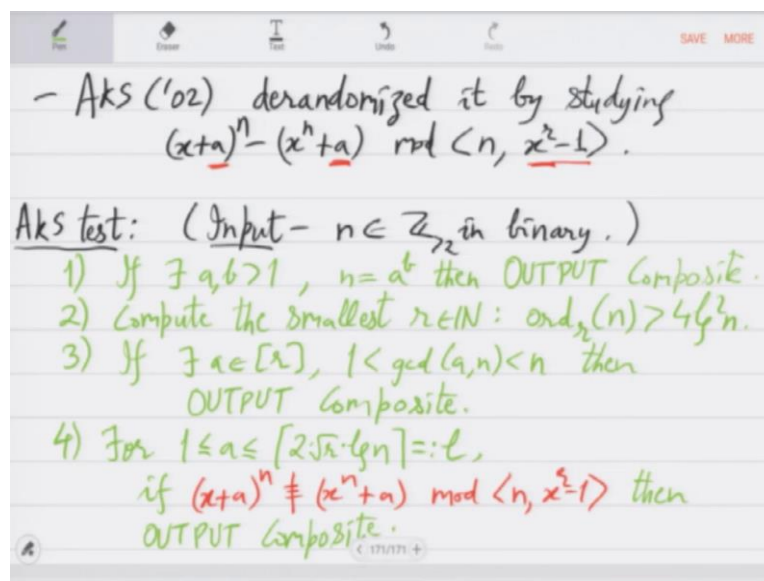 Pen Eraser Text Undo Redo SAVE MORE
- AKS ('02) derandomized it by studying
(x+a)^n - (x^n+a) mod <n, x^r-1>.
AKS test: (Input - n ∈ ℤ_{>2} in binary.)
1) If ∃ a,b>1, n = a^b then OUTPUT Composite.
2) Compute the smallest r∈ℕ: ord_r(n) > 4lg²n.
3) If ∃ a∈[r], 1<gcd(a,n)<n then
OUTPUT Composite.
4) For 1≤a≤⌈2·√r·lgn⌉=:ℓ,
if (x+a)^n ≢ (x^n+a) mod <n, x^r-1> then
OUTPUT Composite.
< 171/171 +